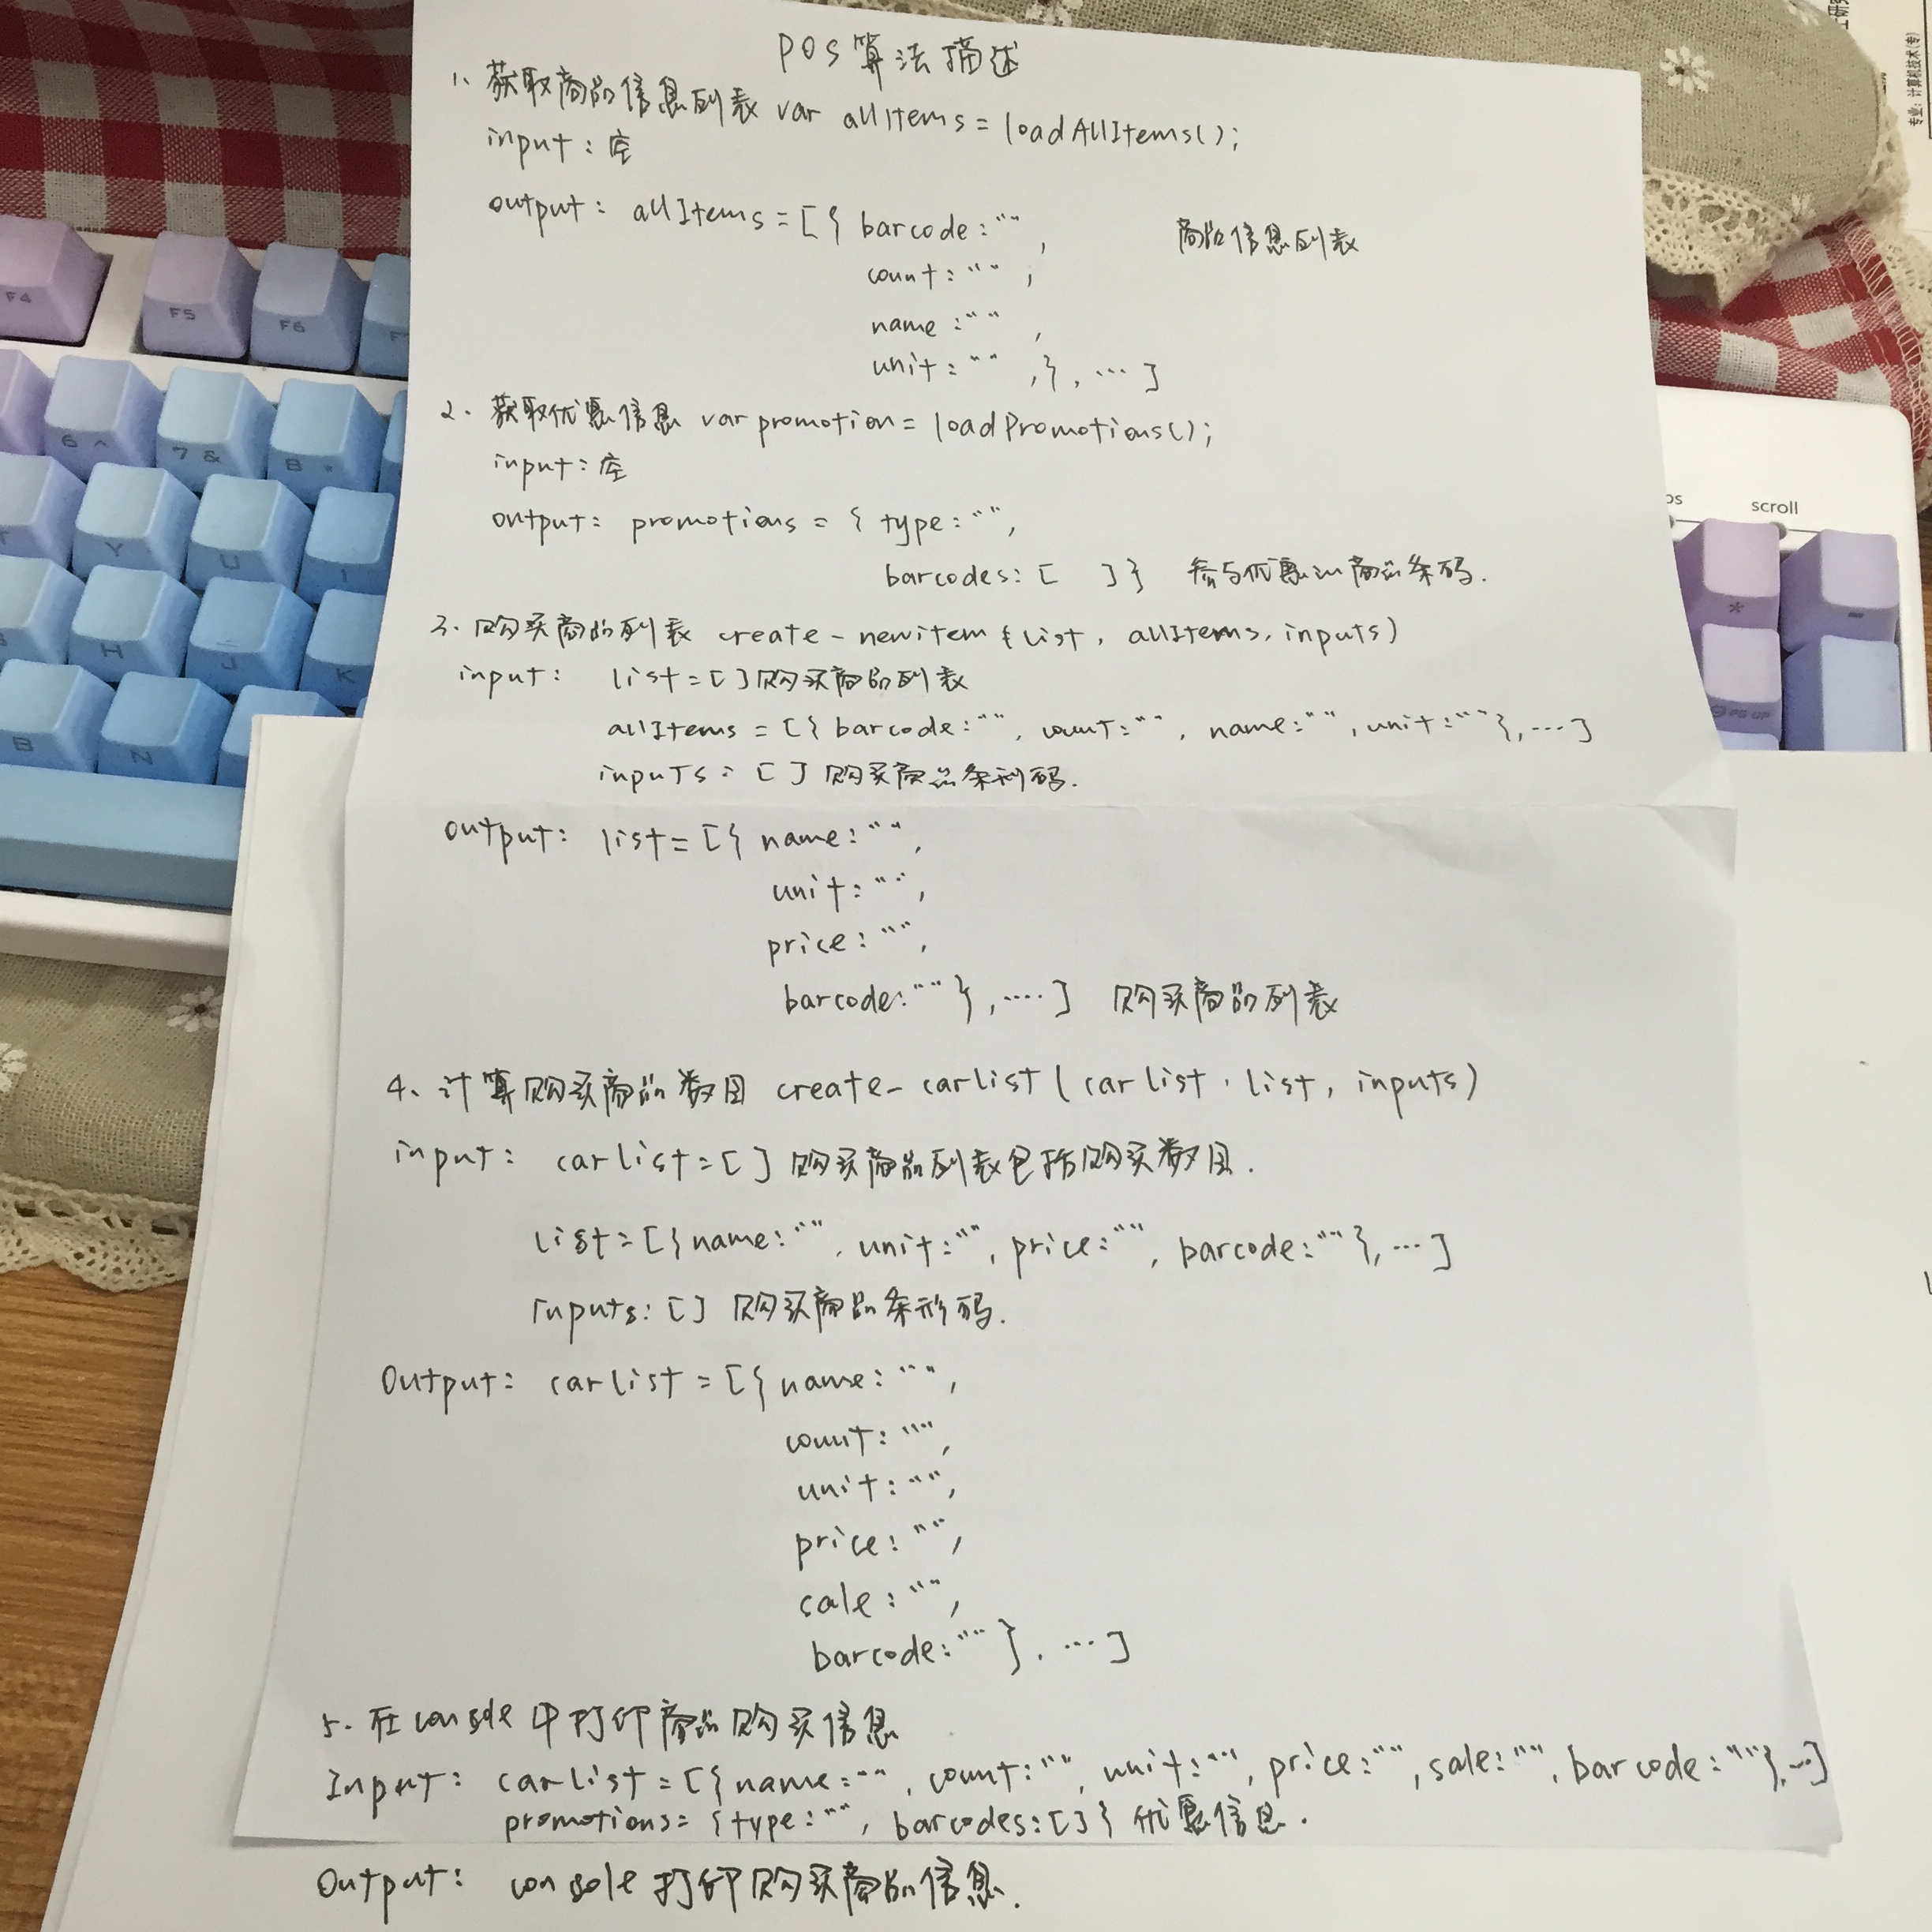 POS算法描述
1. 获取商品信息列表 var allItems = loadAllItems();
input : 空
output : allItems = [{ barcode : "" , 商品信息列表
count : "" ,
name : "" ,
unit : "" , } , ... ]
2. 获取优惠信息 var promotion = loadPromotions();
input : 空
output : promotions = { type : "",
barcodes : [ ] } 参与优惠的商品条码.
3. 购买商品列表 create-newitem (list, allItems, inputs)
input : list = [ ] 购买商品列表
allItems = [{ barcode : "", count : "", name : "", unit : "" }, ... ]
inputs : [ ] 购买商品条形码.
output : list = [{ name : "",
unit : "",
price : "",
barcode : "" } , .... ] 购买商品列表
4. 计算购买商品数目 create-carlist ( carlist, list, inputs )
input : carlist = [ ] 购买商品列表包括购买数目.
list = [{ name : "", unit : "", price : "", barcode : "" }, ... ]
Inputs : [ ] 购买商品条形码.
Output : carlist = [{ name : "",
count : "",
unit : "",
price : "",
sale : "",
barcode : "" } , ... ]
5. 在console中打印商品购买信息
Input : carlist = [{ name : "", count : "", unit : "", price : "", sale : "", barcode : "" }, ... ]
promotions = { type : "", barcodes : [ ] } 优惠信息.
Output : console打印购买商品信息.
F4
F5
F6
6 ^
7 &
8 *
Y
U
I
H
J
K
B
N
scroll
*
-
9 PG UP
专业：计算机技术(专)